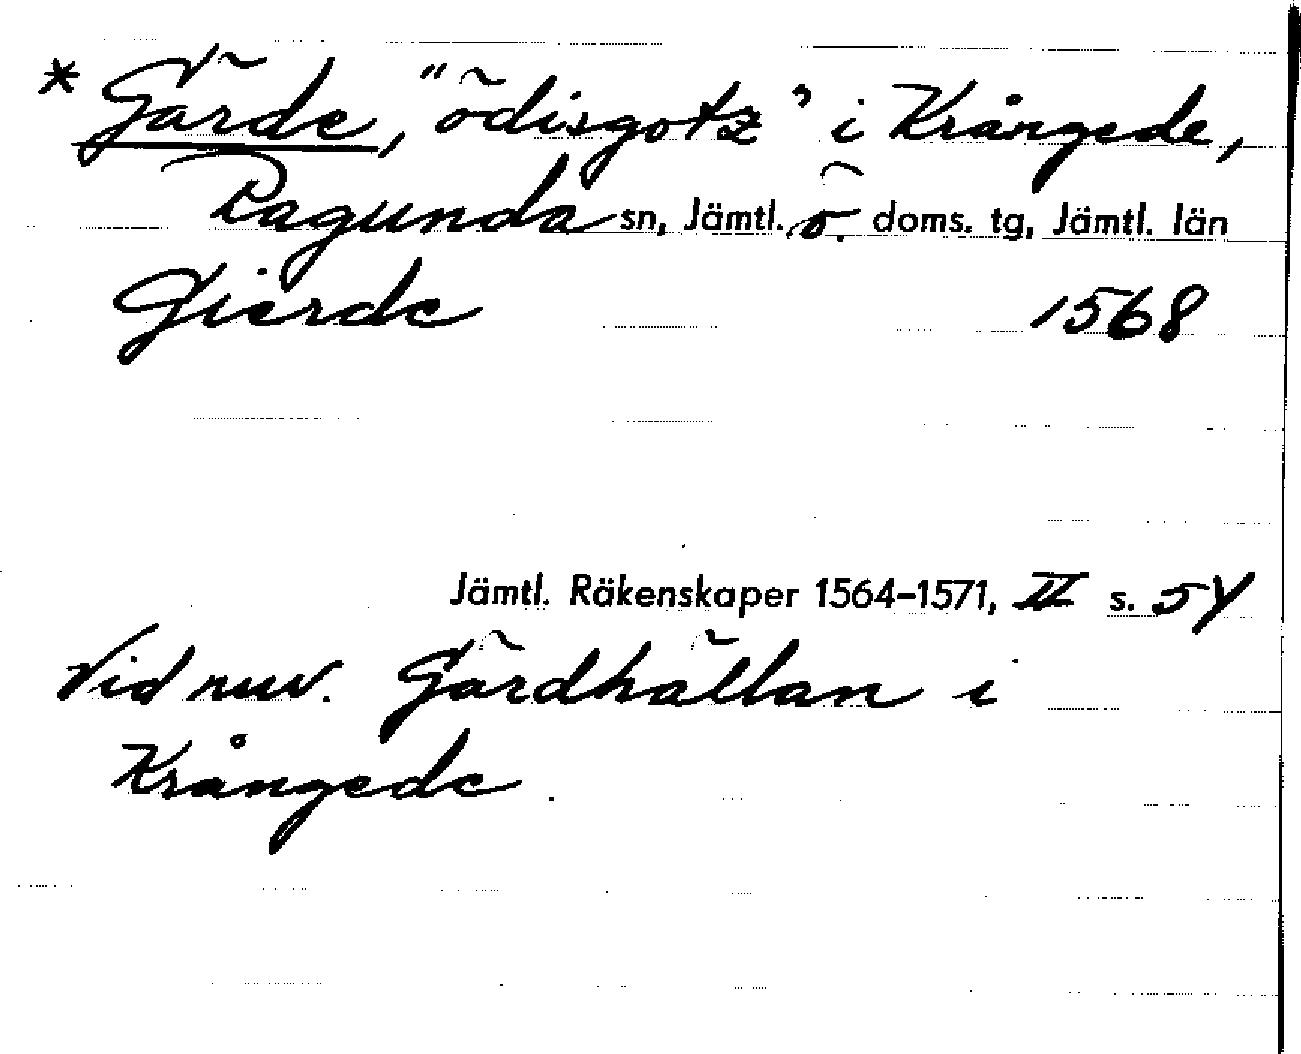 * Gärde, "ödisgotz" i Krångede,
Ragunda sn, Jämtl. ö. doms. tg, Jämtl. län
Gierde 1568
Jämtl. Räkenskaper 1564-1571, II s. 54
Vid nuv. Gärdhällan i
Krångede.